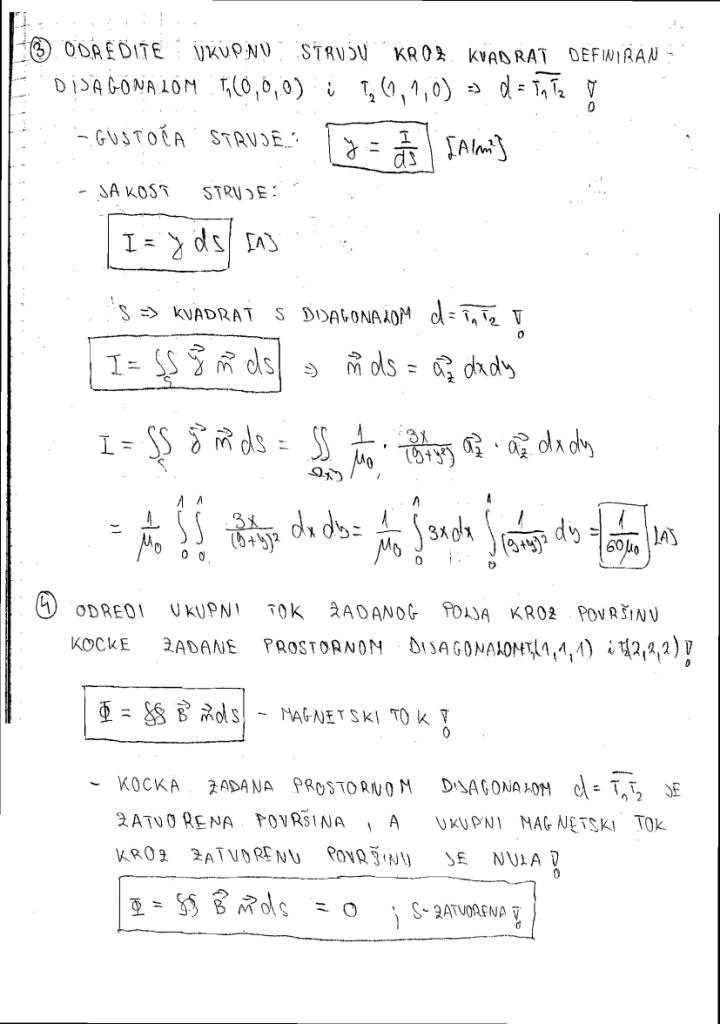 ③ ODREDITE UKUPNU STRUJU KROZ KVADRAT DEFINIRAN
DIJAGONALOM T₁(0,0,0) i T₂(1,1,0) => d = T₁T₂ !
- GUSTOĆA STRUJE: y = I/ds [A/m²]
- JAKOST STRUJE:
I = y ds [A]
S => KVADRAT S DIJAGONALOM d = T₁T₂ !
I = ∫∫ₛ y⃗ n⃗ ds => n⃗ ds = a⃗z dxdy
I = ∫∫ₛ y⃗ n⃗ ds = ∫∫ 1/μ₀ · 3x/(9+y²) a⃗z · a⃗z dxdy
= 1/μ₀ ∫₀¹∫₀¹ 3x/(9+y)² dxdy = 1/μ₀ ∫₀¹ 3xdx ∫₀¹ 1/(9+y)² dy = 1/60μ₀ [A]
④ ODREDI UKUPNI TOK ZADANOG POLJA KROZ POVRŠINU
KOCKE ZADANE PROSTORNOM DIJAGONALOM T₁(1,1,1) i T₂(2,2,2) !
Φ = ∯ B⃗ n⃗ ds - MAGNETSKI TOK !
- KOCKA ZADANA PROSTORNOM DIJAGONALOM d = T₁T₂ JE
ZATVORENA POVRŠINA, A UKUPNI MAGNETSKI TOK
KROZ ZATVORENU POVRŠINU JE NULA !
Φ = ∯ B⃗ n⃗ ds = 0 ; S-ZATVORENA !